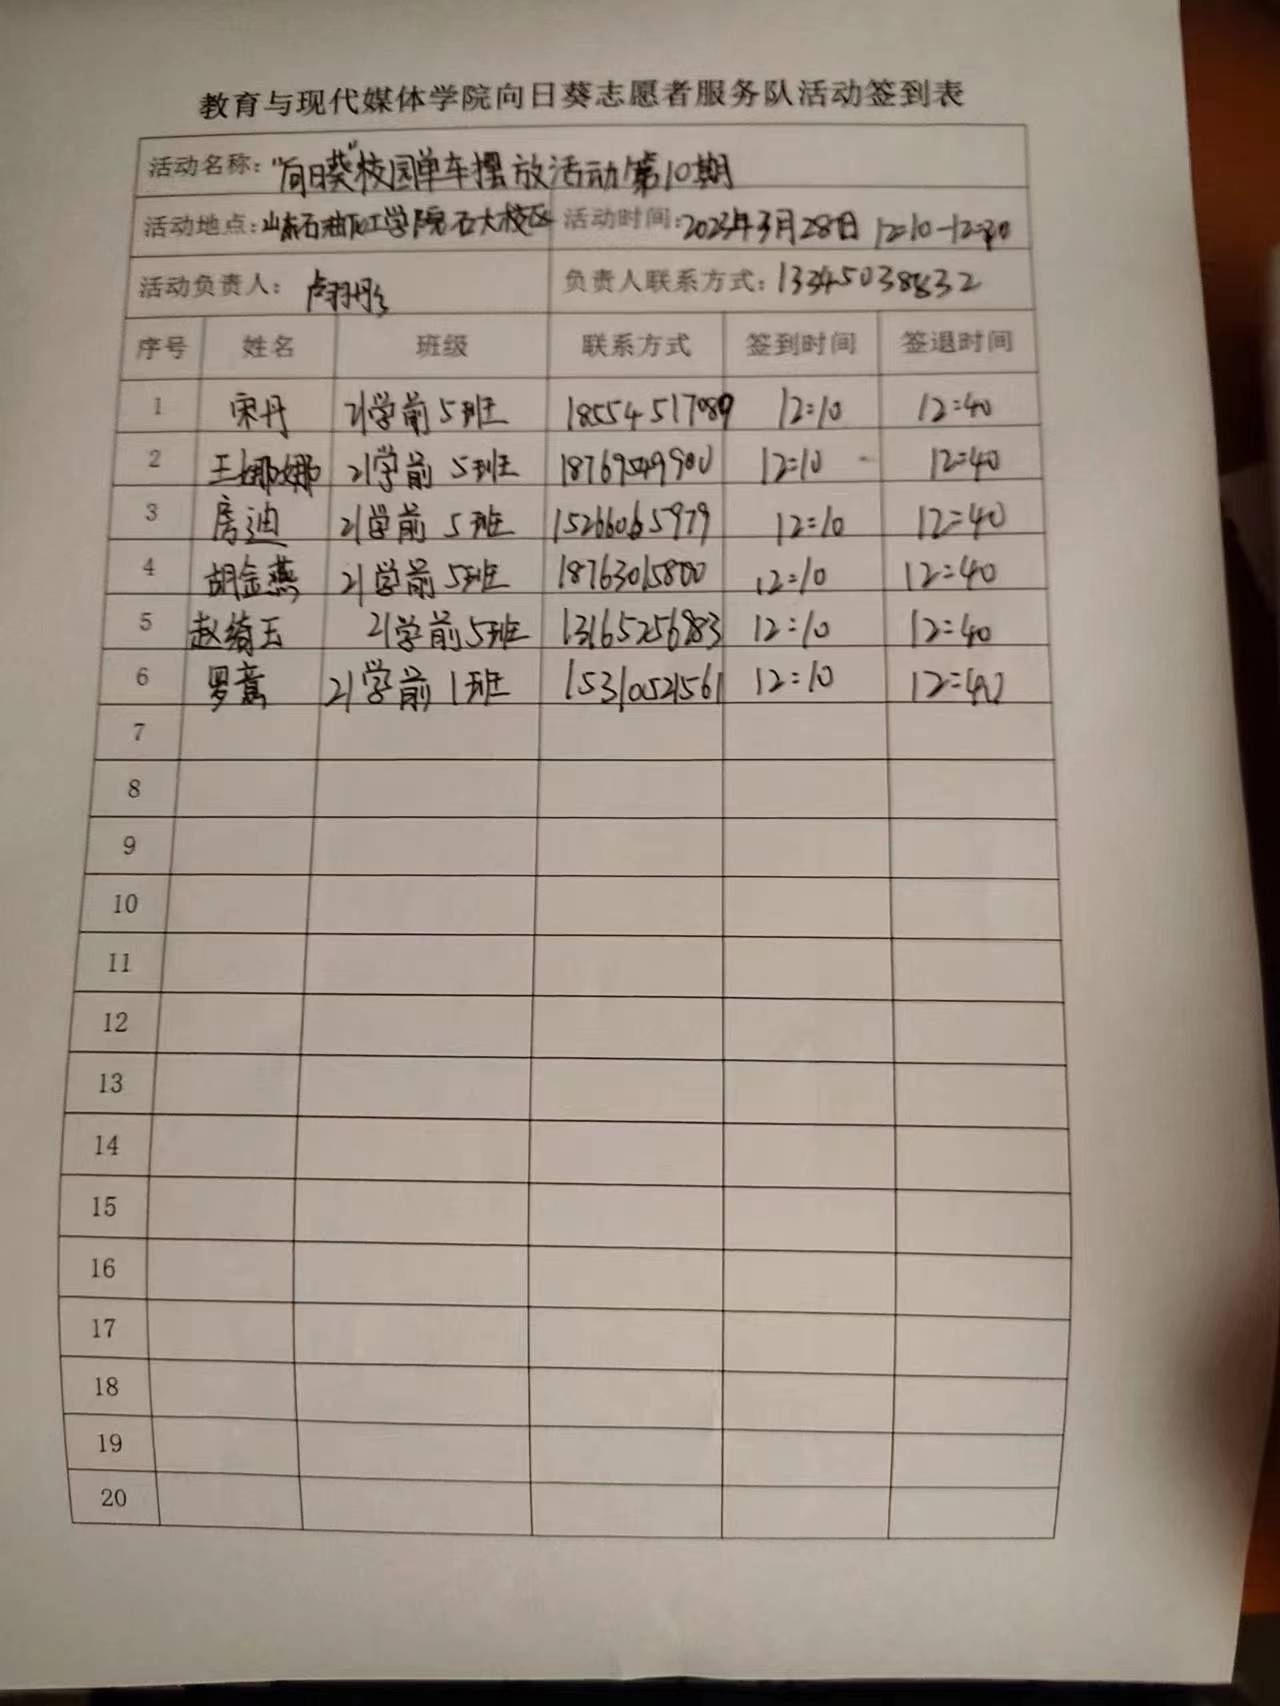 教育与现代媒体学院向日葵志愿者服务队活动签到表
活动名称："向日葵"校园单车摆放活动第10期
活动地点：山东石油化工学院石大校区 活动时间：2023年3月28日 12:10-12:
活动负责人： 负责人联系方式：13345038832
序号 姓名 班级 联系方式 签到时间 签退时间
1 宋丹 21学前5班 18554517089 12:10 12:40
2 王娜娜 21学前5班 18769549900 12:10 12:40
3 房迪 21学前5班 15266065979 12:10 12:40
4 胡金燕 21学前5班 18763015800 12:10 12:40
5 赵绮玉 21学前5班 13165256983 12:10 12:40
6 罗意 21学前1班 15310521561 12:10 12:40
7
8
9
10
11
12
13
14
15
16
17
18
19
20